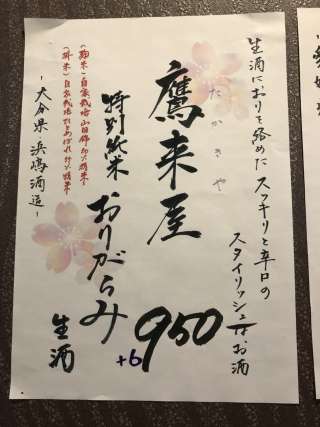 生酒におりを絡めたスッキリと辛口の
スタイリッシュなお酒
たかきや
鷹来屋
特別純米
おりがらみ
生酒
950
+6
(麹米)自家栽培山田錦50%精米
(掛米)自家栽培ひとめぼれ55%精米
-大分県 浜嶋酒造-